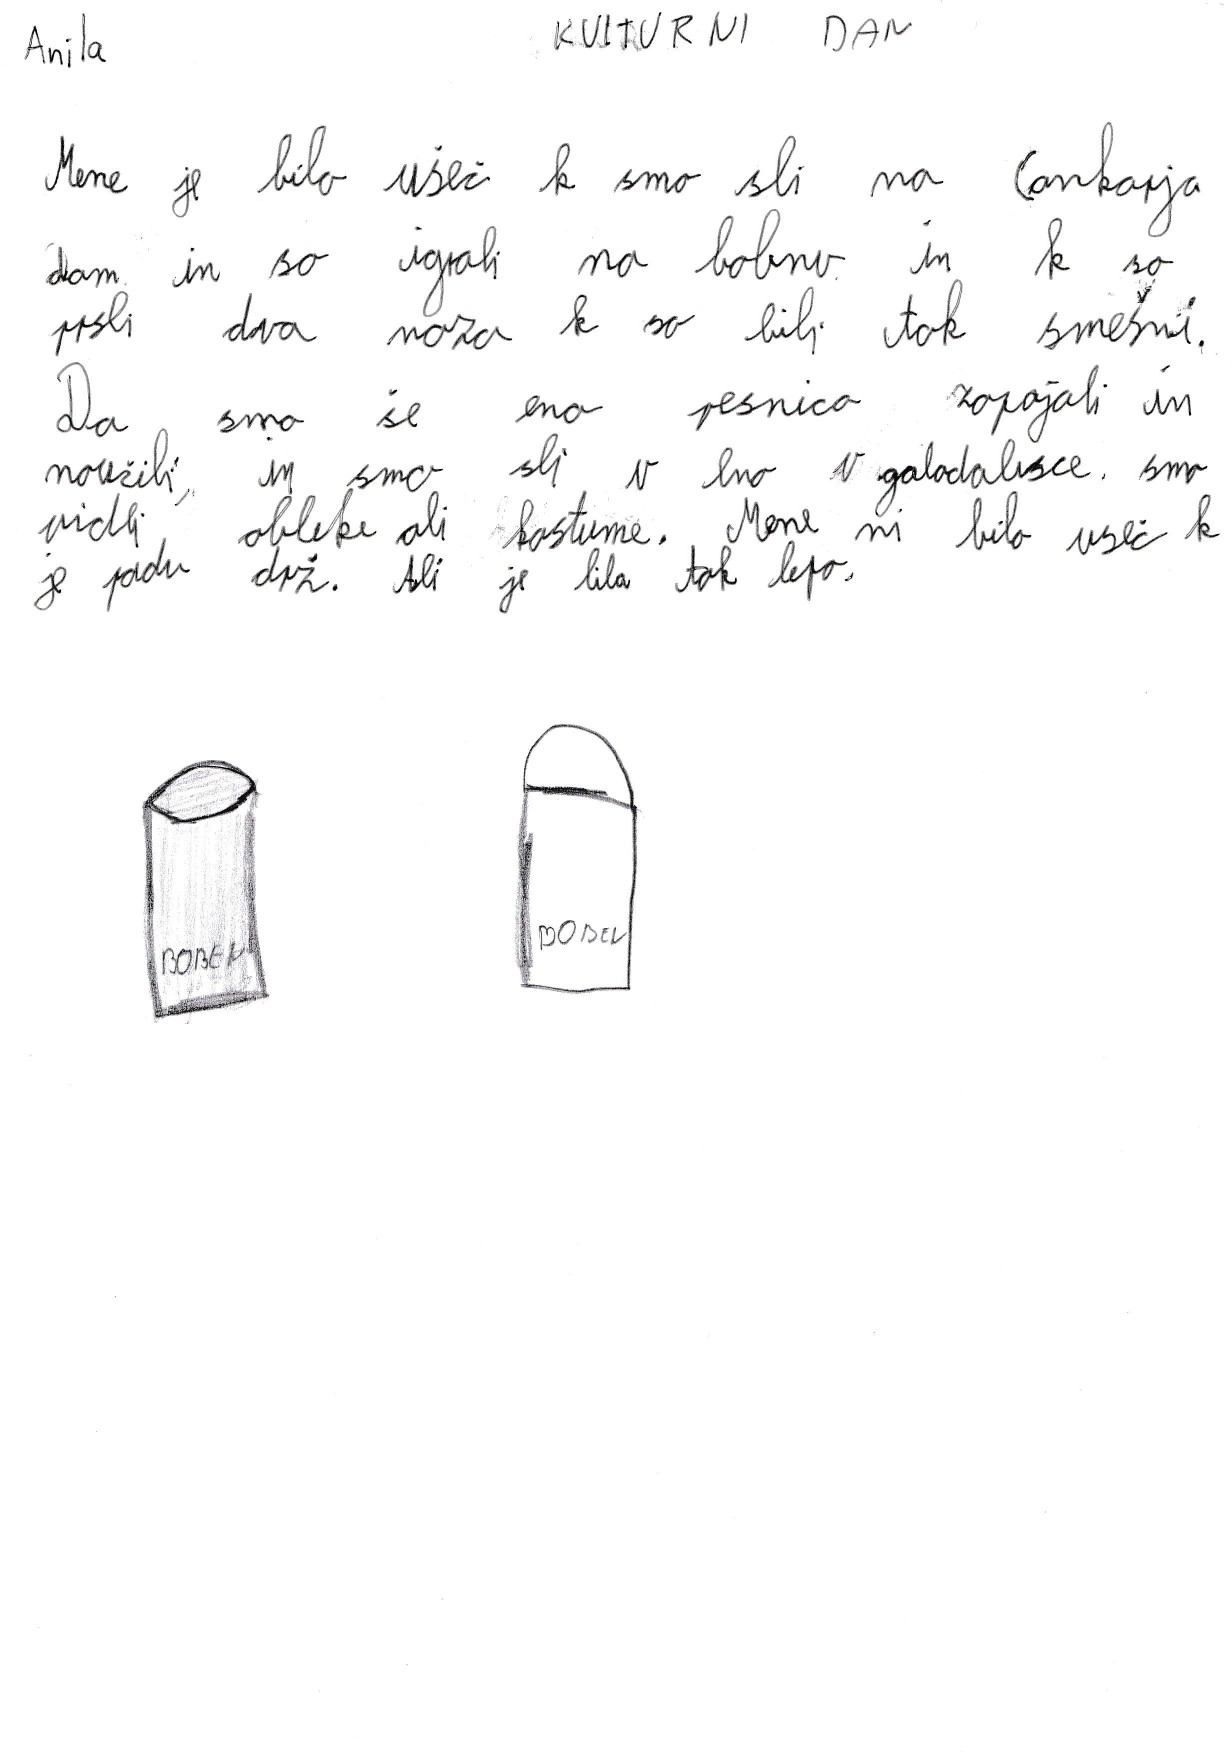 Anila
KULTURNI DAN
Mene je bilo ušeč k smo sli na Cankarja
dam in so igrali na bobnu in k so
prsli dva noža k so bili tok smešni.
Da smo še eno pesnico zapojali in
noužili, in smo sli v eno v galodalisce. smo
vidli obleke ali kostume. Mene ni bilo useč k
je padu drž. Ali je lila tak lepo.
BOBEN BOBEN